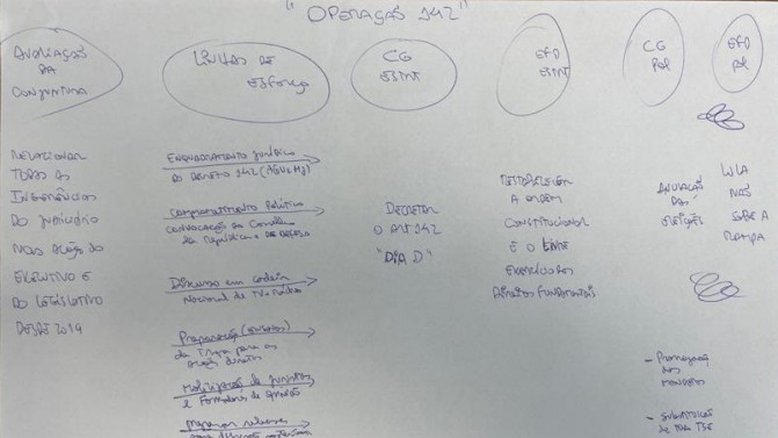 "OPERAÇÃO 142"
AVALIAÇÃO
DA
CONJUNTURA
LINHAS DE
ESFORÇO
CG
ESINT
EFD
ESINT
CG
POL
EFD
POL
RELACIONAR
TODAS AS
INGERÊNCIAS
DO JUDICIÁRIO
NAS AÇÕES DO
EXECUTIVO E
DO LEGISLATIVO
DESDE 2019
ENQUADRAMENTO JURÍDICO
DO DECRETO 142 (AGU e MJ)
COMPROMETIMENTO POLÍTICO
CONVOCAÇÃO do Conselho
da República e DE DEFESA
Discurso em cadeia
Nacional de TV e Rádio
Preparação
da Tropa para as
ações diretas
Mobilização de juristas
e Formadores de opinião
DECRETAR
O ART 142
"DIA D"
RESTABELECER
A ORDEM
CONSTITUCIONAL
E O LIVRE
EXERCÍCIO DOS
DIREITOS FUNDAMENTAIS
ANULAÇÃO
DAS
ELEIÇÕES
- Prorrogação
dos
MANDATOS
- SUBSTITUIÇÃO
DE TODO TSE
LULA
NÃO
SOBE A
RAMPA